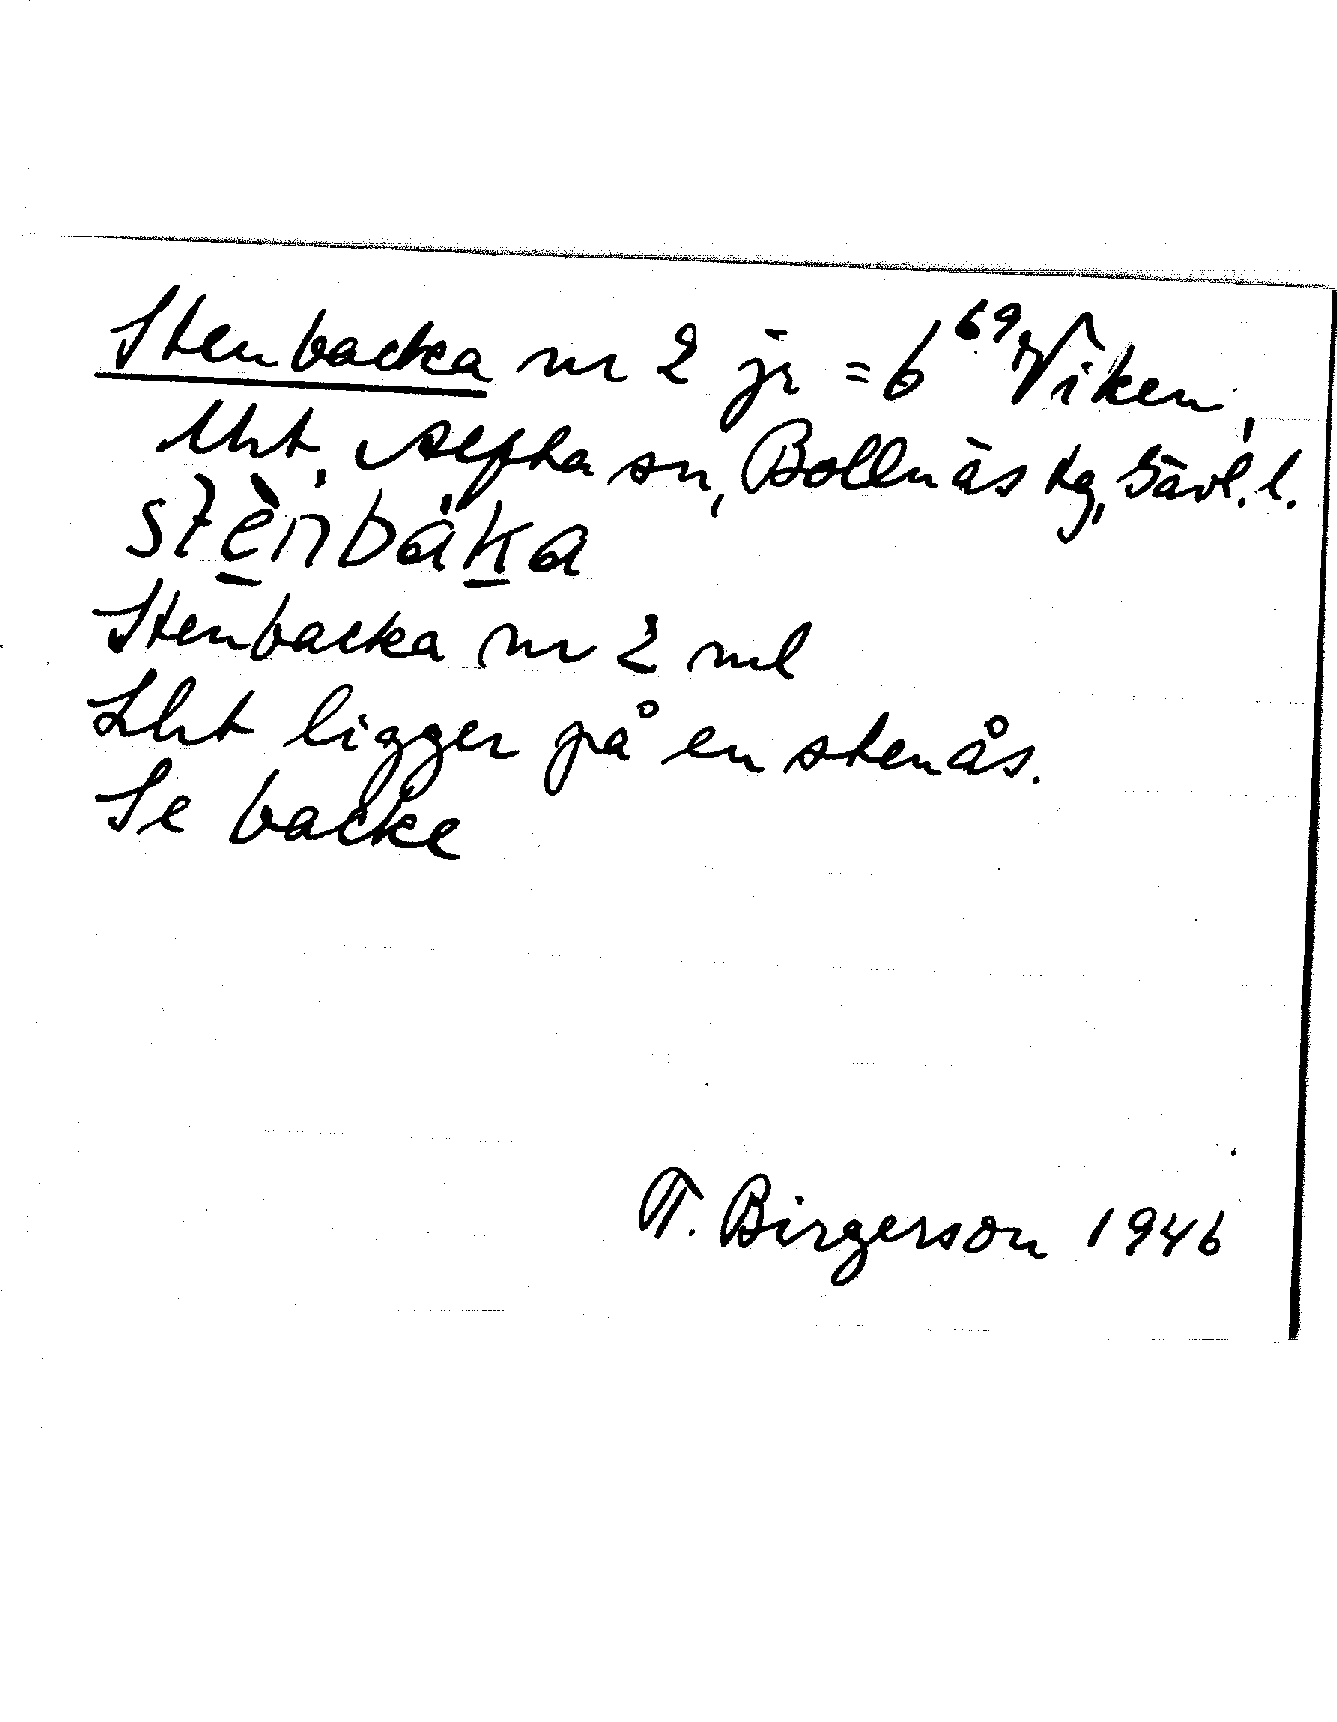 Stenbacka nr 2 jr = 6⁶⁹ Viken,
Lht, Alfta sn, Bollnäs tg, Gävl. l.
stè̱nbáḵa
Stenbacka nr 2 ml
Lht ligger på en stenås.
Se backe
T. Birgerson 1946